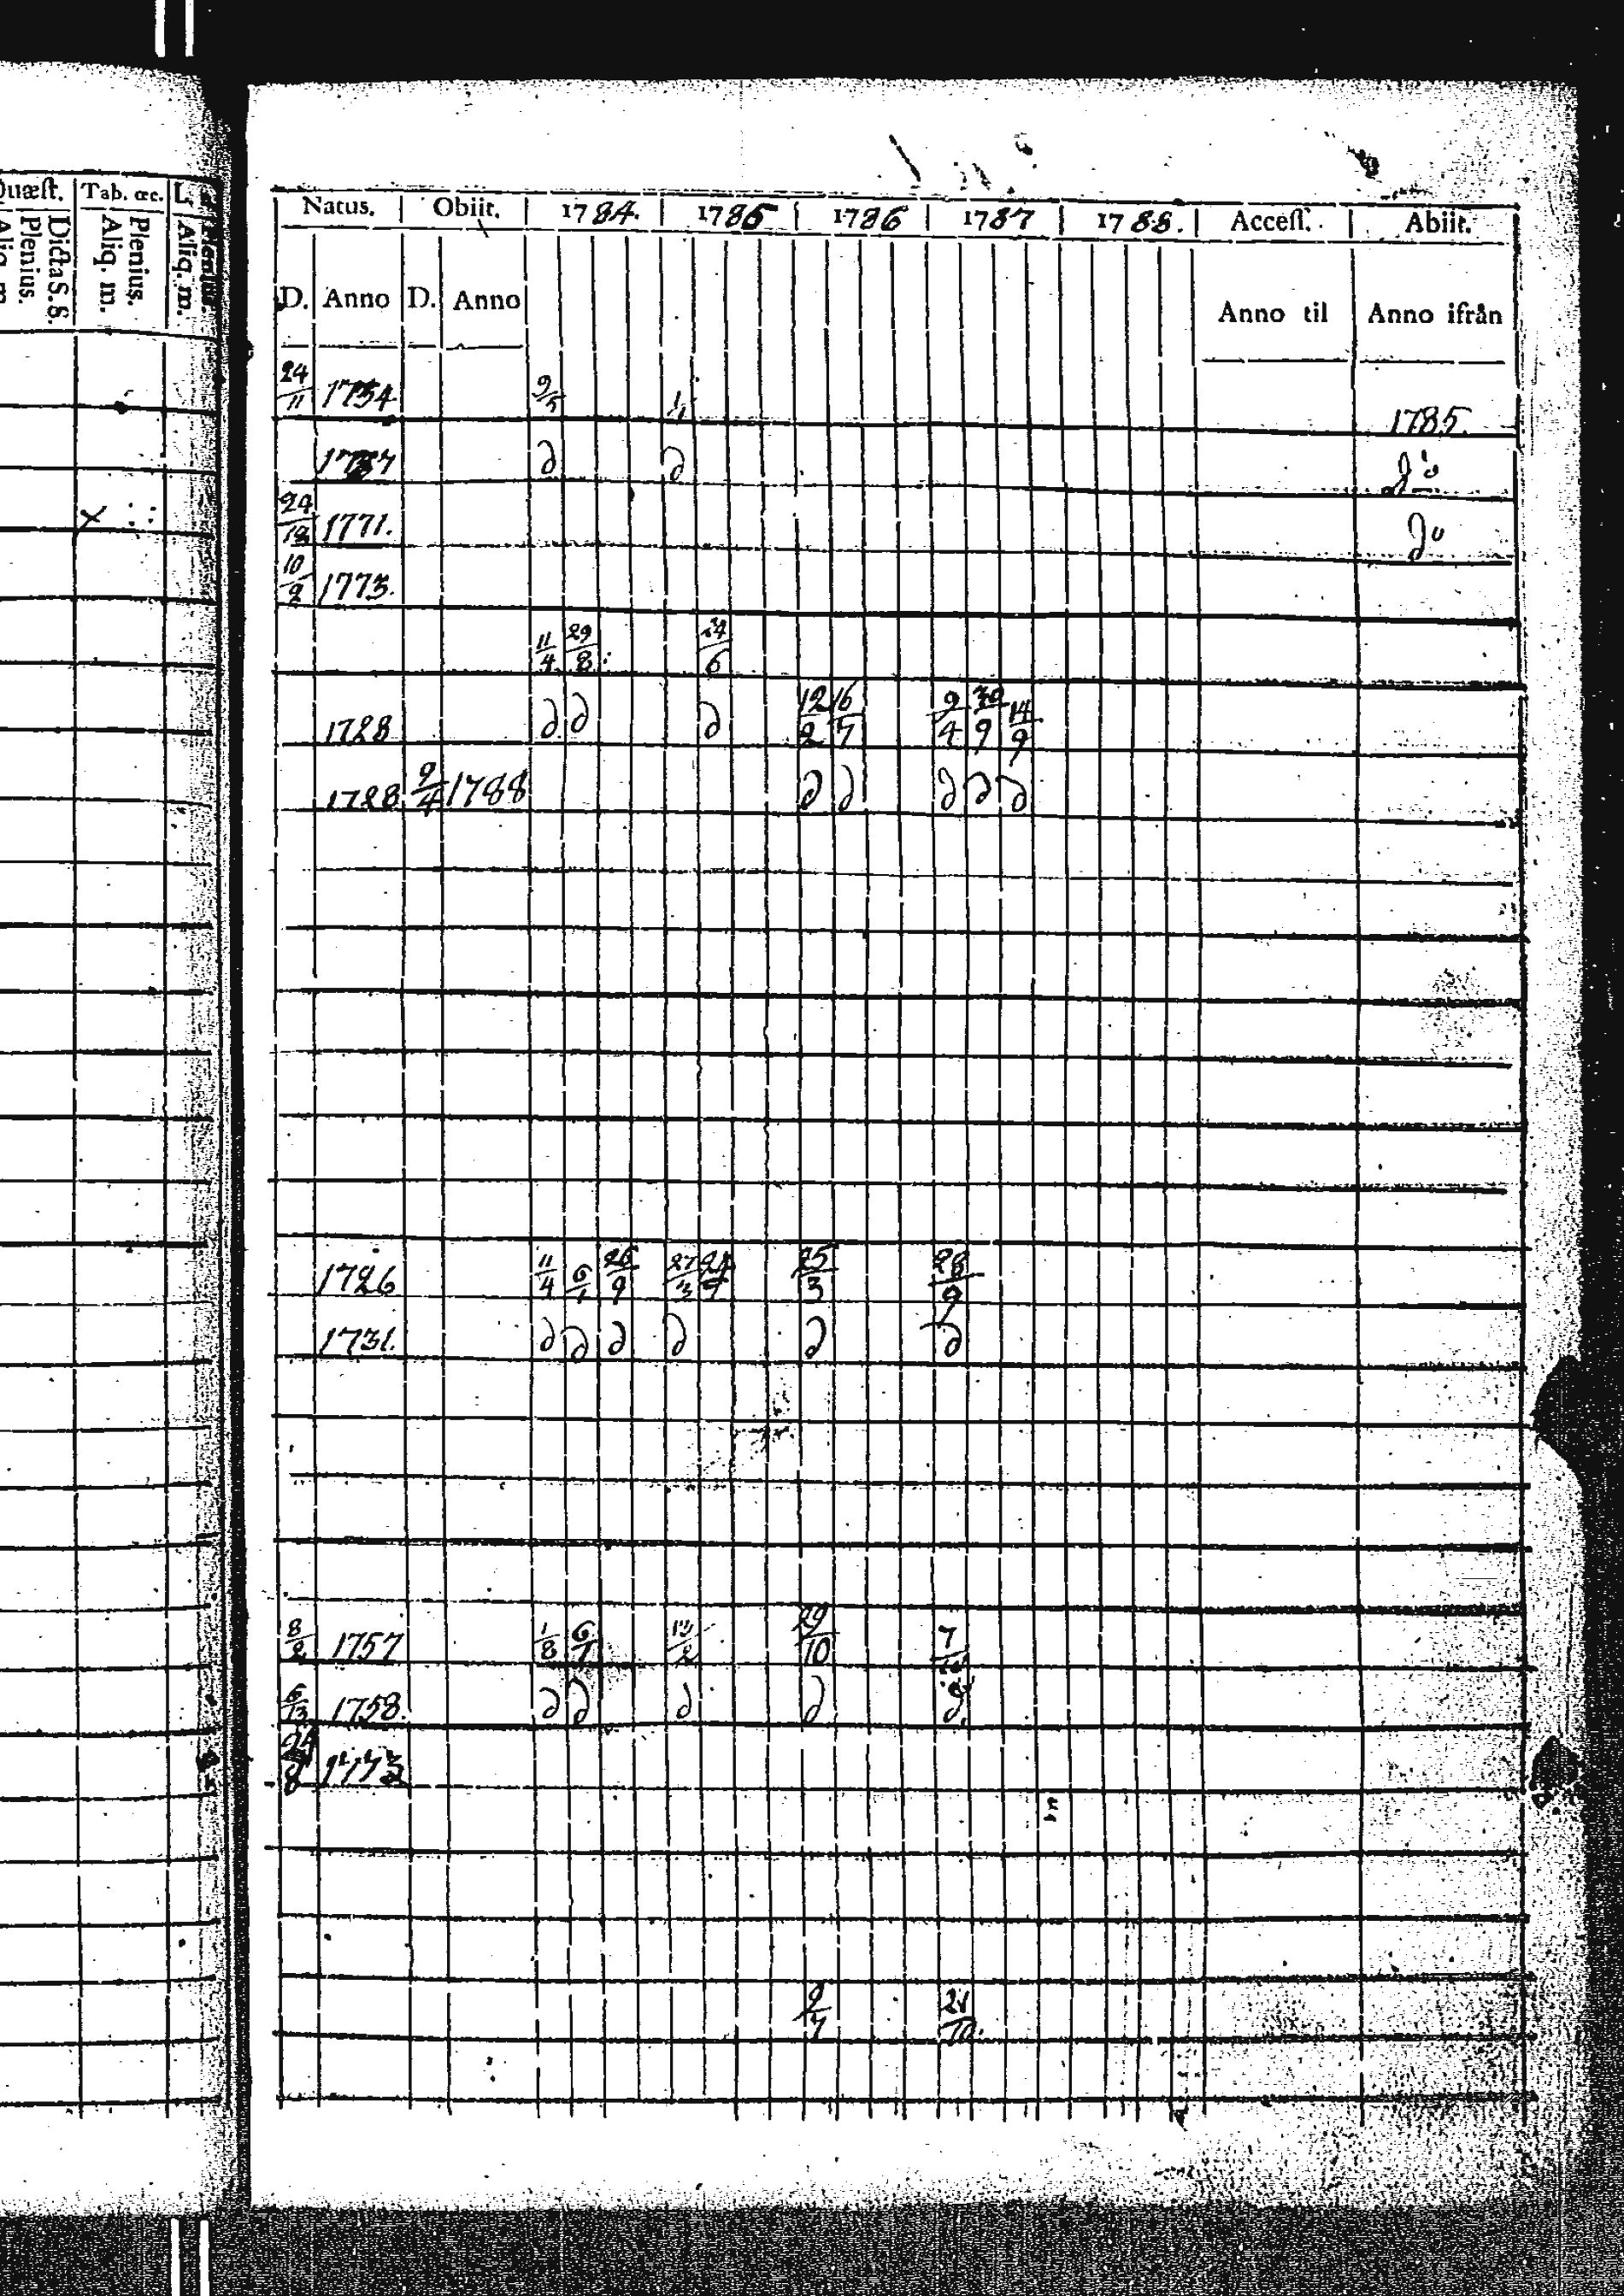 Quæst. Tab. œc. L.
Dicta S. S.
Plenius.
Aliq. m.
Plenius.
Aliq. m.
Plenius.
Aliq. m.
Natus. Obiit. 1784. 1785 1786 1787 1788. Access. Abiit.
D. Anno D. Anno Anno til Anno ifrån
24/11 1754 9/5 1/1 1785.
∂ ∂ do
24/12 1771. do
10/2 1773.
11/4 29/8 24/6
1728 ∂ ∂ ∂ 12/2 16/7 9/4 30/9 14/9
1728 9/4 1788 ∂ ∂ ∂ ∂ ∂
1726 11/4 6/7 26/9 27/3 25/3 28/9
1731. ∂ ∂ ∂ ∂ ∂ ∂
8/2 1757 1/8 6/7 29/10 7
6/13 1758. ∂ ∂ ∂ ∂ ∂
24/8 1773
9/7 21/10.